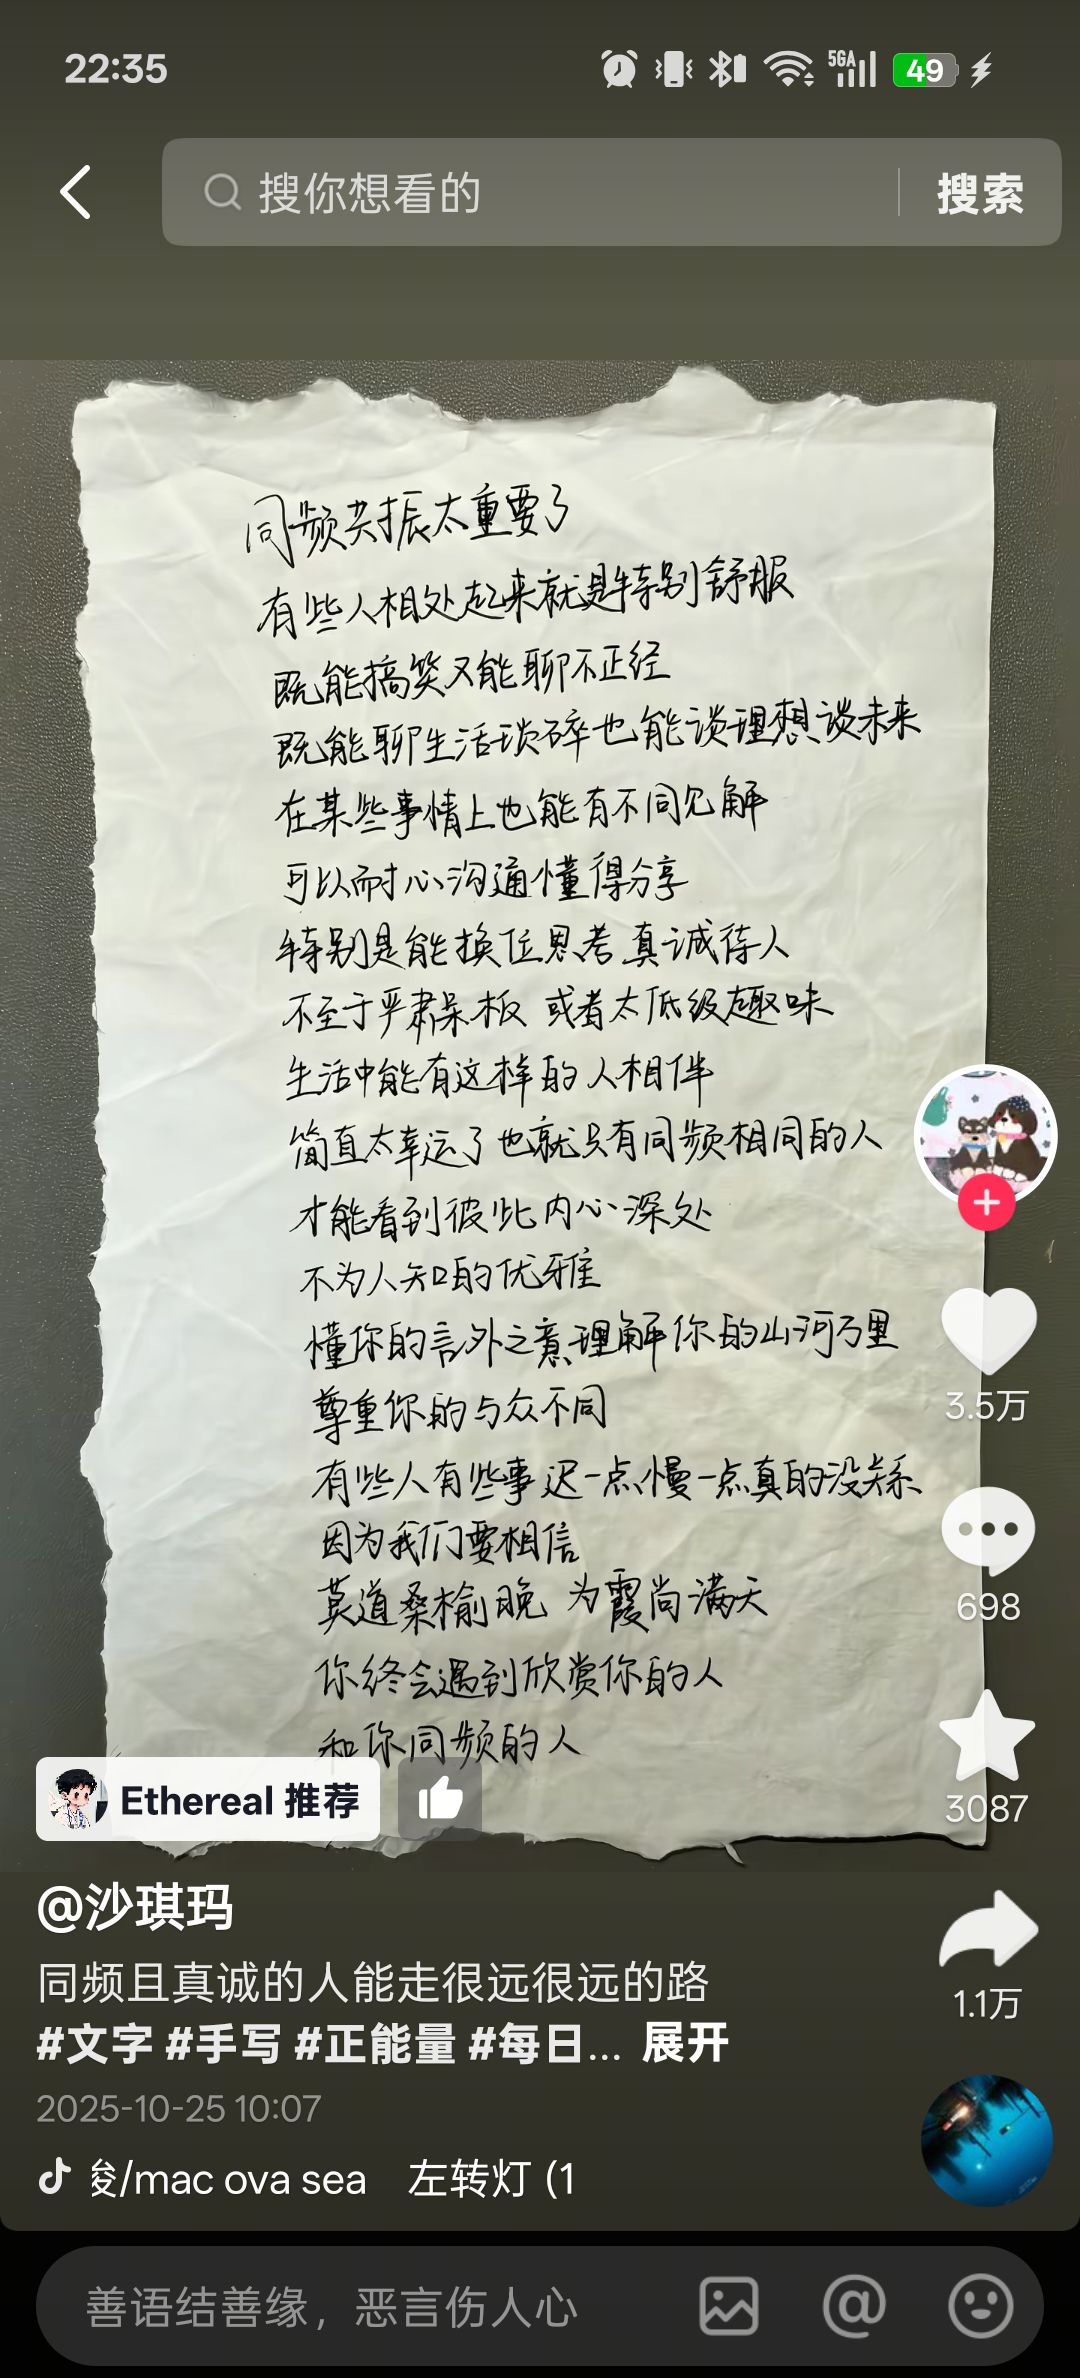 22:35
5GA
49
搜你想看的
搜索
同频共振太重要了
有些人相处起来就是特别舒服
既能搞笑又能聊不正经
既能聊生活琐碎也能谈理想谈未来
在某些事情上也能有不同见解
可以耐心沟通懂得分享
特别是能换位思考真诚待人
不至于严肃呆板 或者太低级趣味
生活中能有这样的人相伴
简直太幸运了也就只有同频相同的人
才能看到彼此内心深处
不为人知的优雅
懂你的言外之意理解你的山河万里
尊重你的与众不同
有些人有些事迟一点慢一点真的没关系
因为我们要相信
莫道桑榆晚 为霞尚满天
你终会遇到欣赏你的人
和你同频的人
3.5万
698
3087
1.1万
Ethereal 推荐
@沙琪玛
同频且真诚的人能走很远很远的路
#文字 #手写 #正能量 #每日... 展开
2025-10-25 10:07
/mac ova sea 左转灯 (1
善语结善缘，恶言伤人心